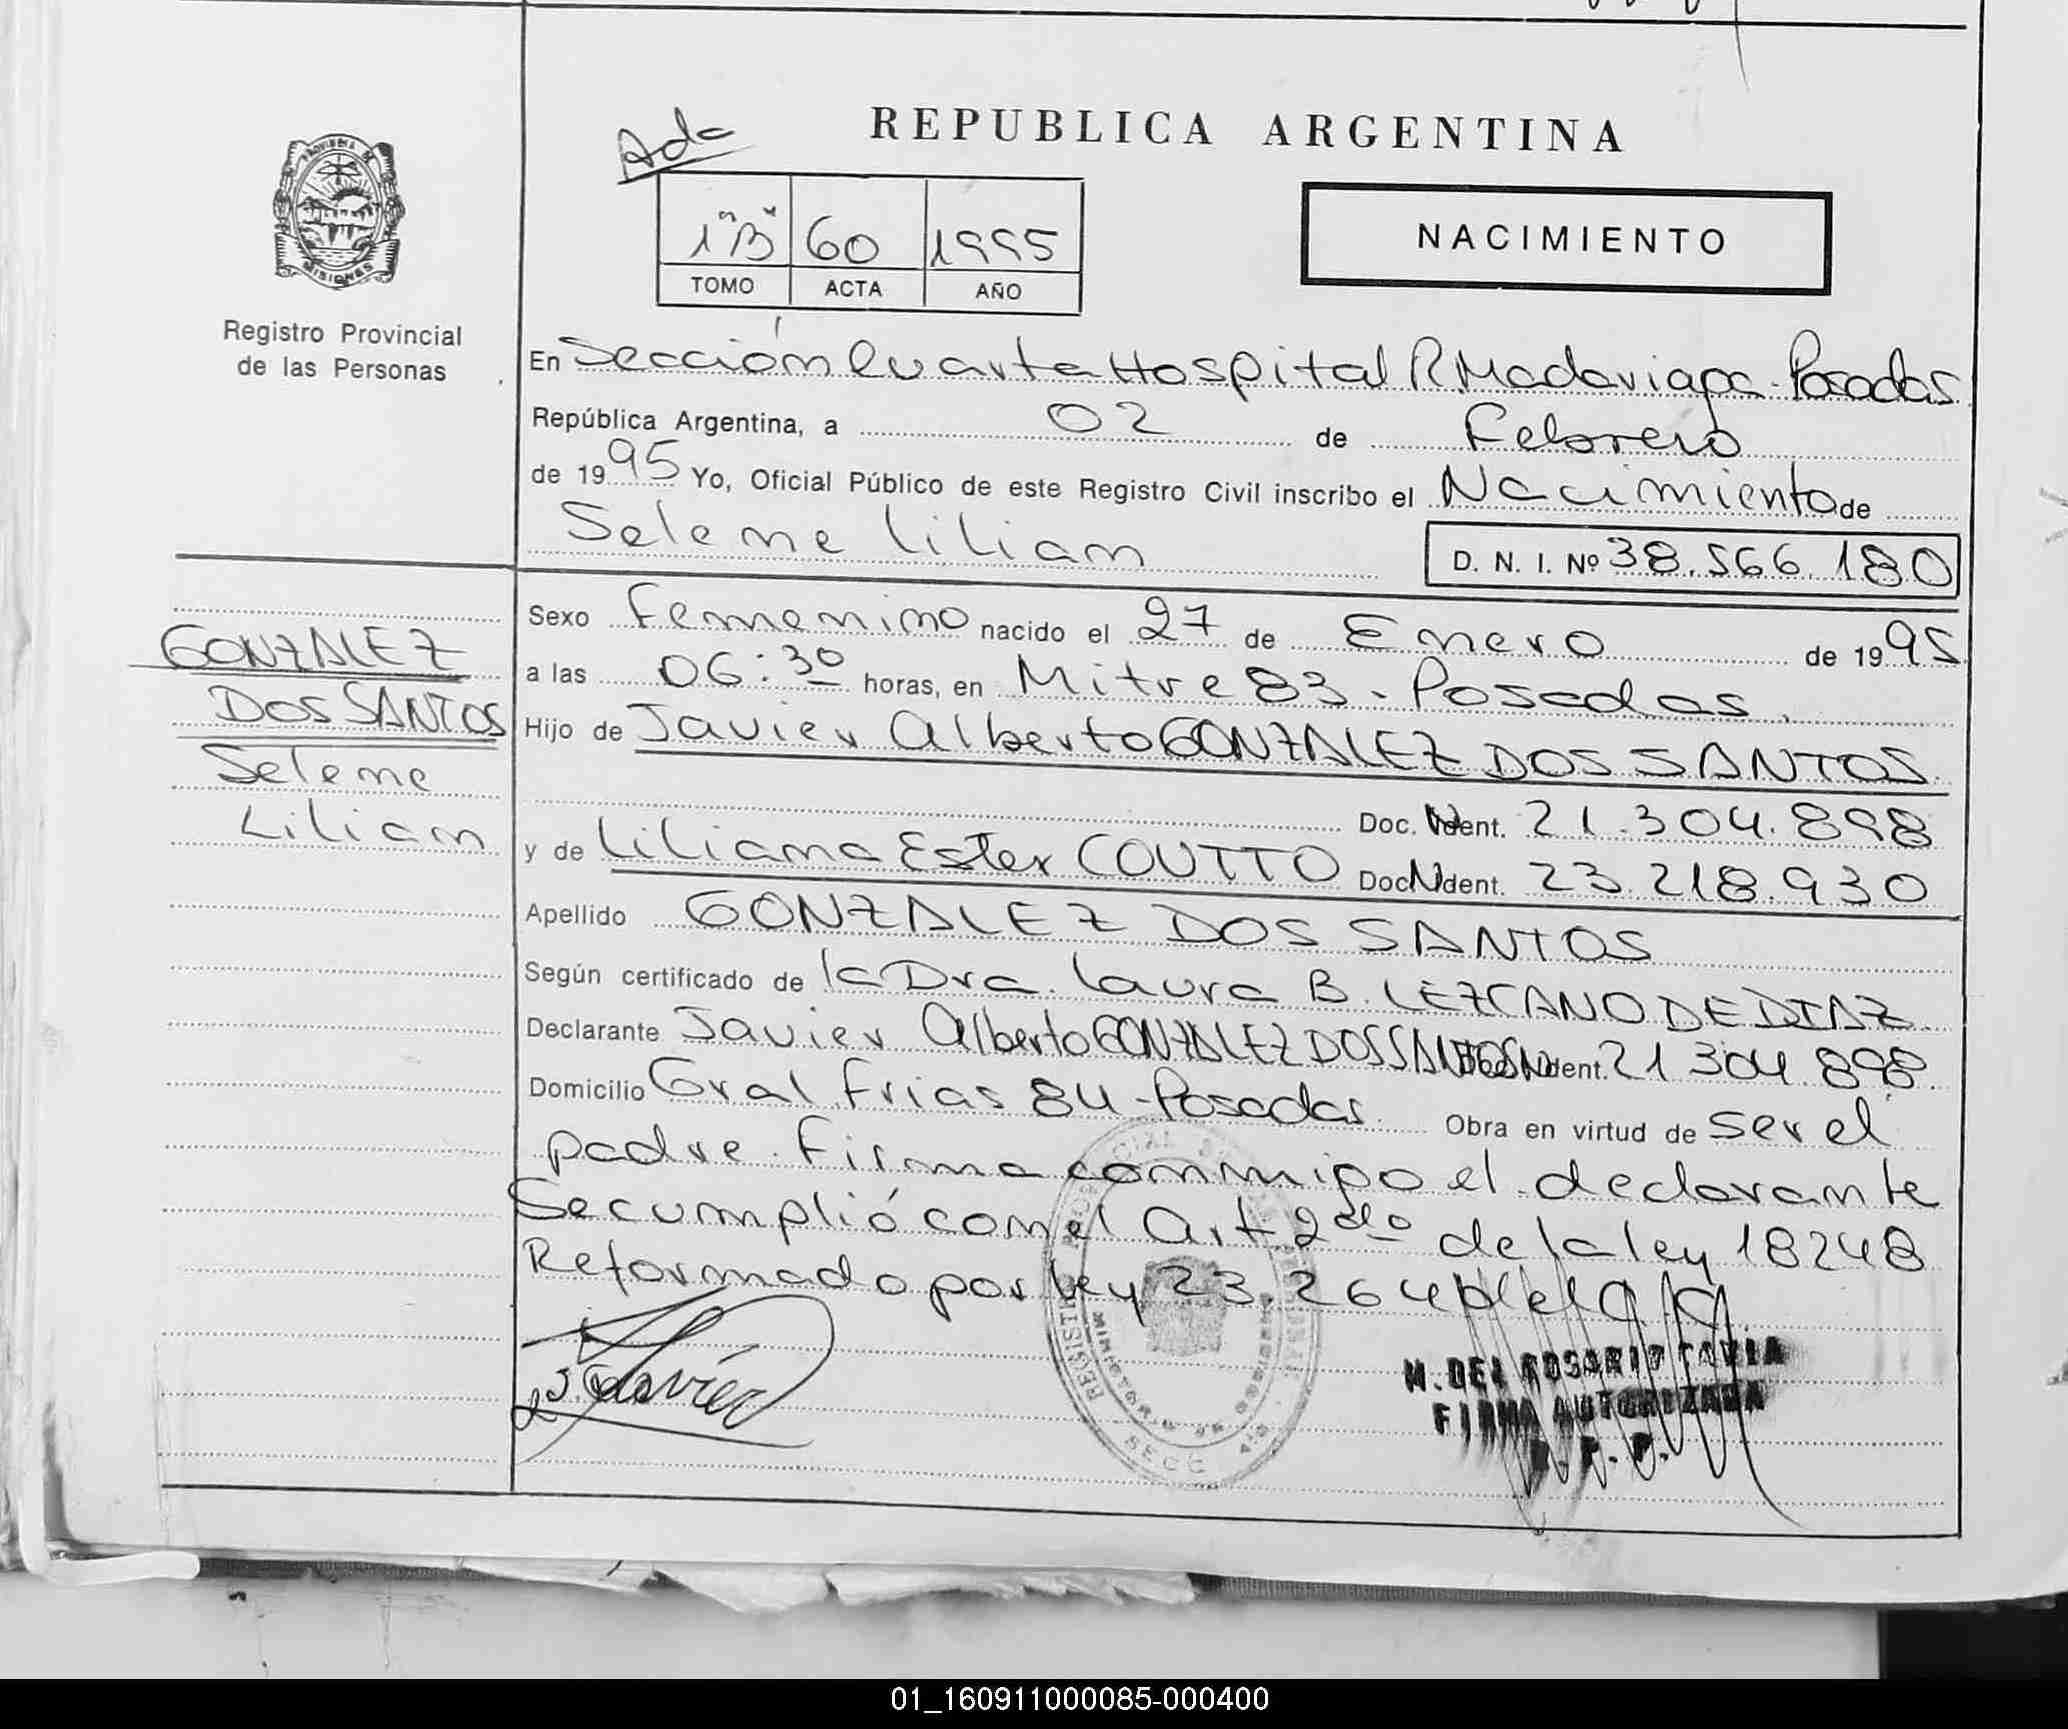 REPUBLICA ARGENTINA
Ada
1 "B" 60 1995
TOMO ACTA AÑO
NACIMIENTO
PROVINCIA DE
MISIONES
Registro Provincial
de las Personas
En Sección Cuarta Hospital R Madariaga - Posadas
República Argentina, a 02 de Febrero
de 1995 Yo, Oficial Público de este Registro Civil inscribo el Nacimiento de
Selene Liliam
D. N. I. Nº 38.566.180
GONZALEZ
DOS SANTOS
Selene
Liliam
Sexo Femenino nacido el 27 de Enero de 1995
a las 06:30 horas, en Mitre 83 - Posadas
Hijo de Javier Alberto GONZALEZ DOS SANTOS
Doc. Ident. 21.304.898
y de Liliana Ester COUTTO Doc. Ident. 23.218.930
Apellido GONZALEZ DOS SANTOS
Según certificado de la Dra. Laura B. LEZCANO DE DIAZ
Declarante Javier Alberto GONZALEZ DOS SANTOS Doc. Ident. 21 304.898
Domicilio Gral Frias 84 - Posadas Obra en virtud de ser el
padre. Firma conmigo el declarante
Se cumplió con el Art 2do de la ley 18248
Reformado por ley 23.264
M. DEL ROSARIO TAVIA
FIRMA AUTORIZADA
R. P. P.
01_160911000085-000400